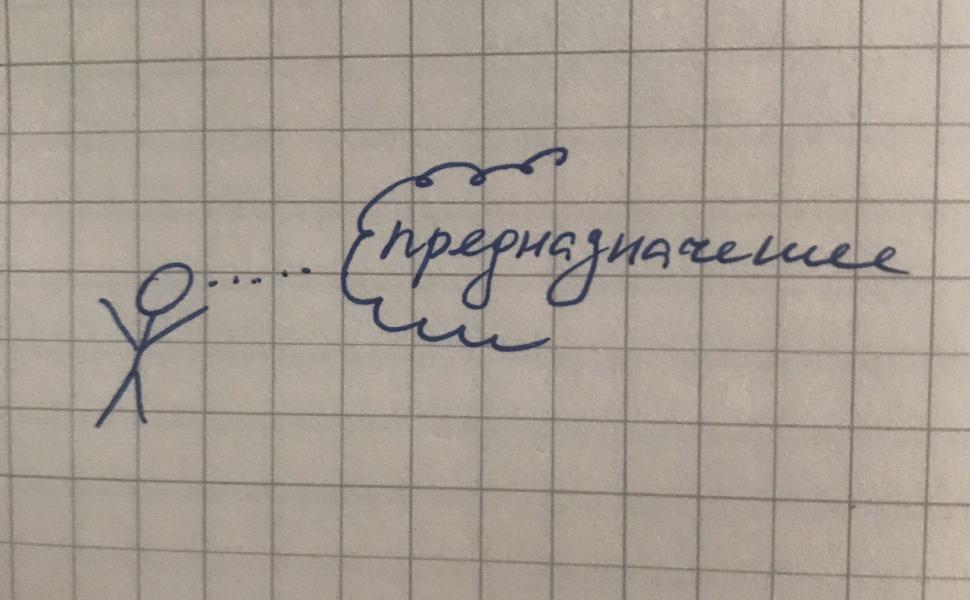 предназначение